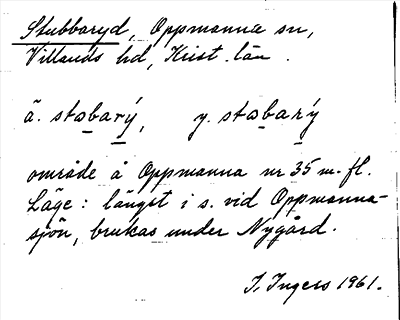 Stubbaryd, Oppmanna sn,
Villands hd, Krist. län.
ä. stabarý, y. stabarý
område å Oppmanna nr 35 m. fl.
Läge: längst i s. vid Oppmanna-
sjön, brukas under Nygård.
I. Ingers 1961.